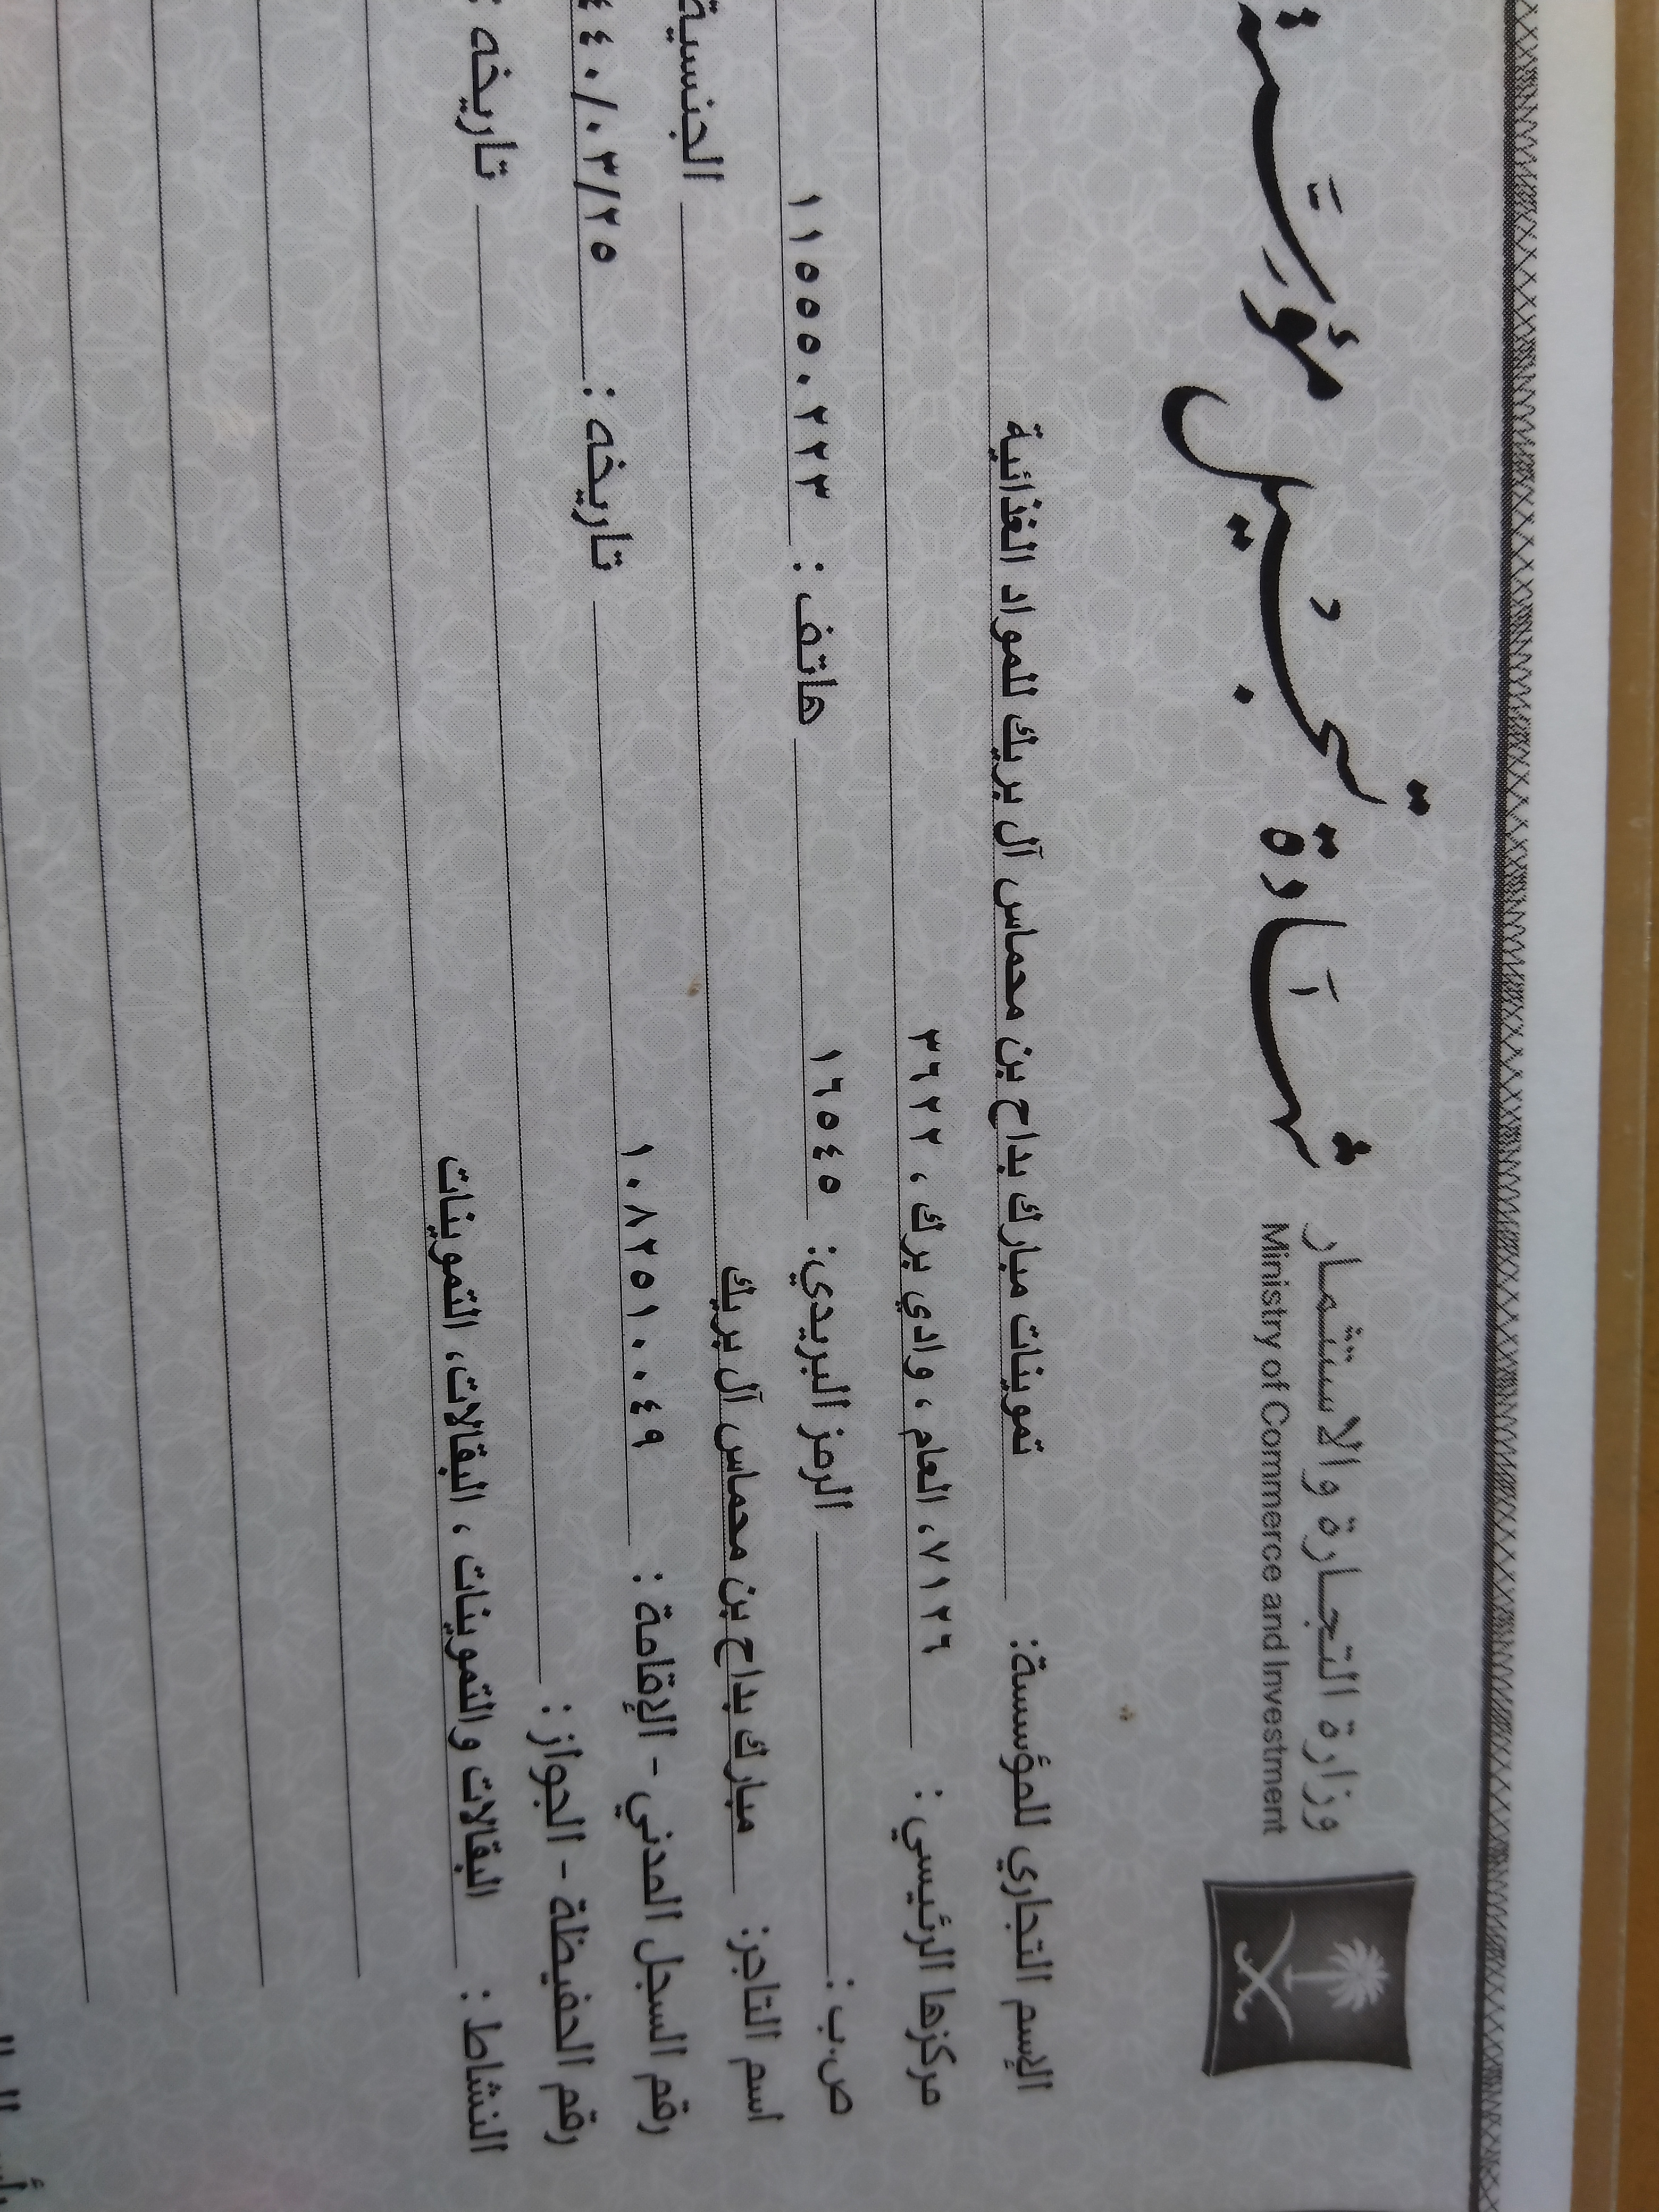 وزارة التجارة والاستثمار
Ministry of Commerce and Investment
شهادة تسجيل مؤسسة
الإسم التجاري للمؤسسة: تموينات مبارك بداح بن محماس آل بريك للمواد الغذائية
مركزها الرئيسي : ٧١٢٦، العام ، وادي برك ، ٣٦٢٢
ص.ب : الرمز البريدي: ١٦٥٤٥ هاتف : ١١٥٥٥٠٢٢٣
اسم التاجر: مبارك بداح بن محماس آل بريك الجنسية
رقم السجل المدني - الإقامة : ١٠٨٢٥١٠٠٤٩ تاريخه : ٤٤٠/٠٣/٢٥
رقم الحفيظة - الجواز : تاريخه :
النشاط : البقالات والتموينات ، البقالات، التموينات